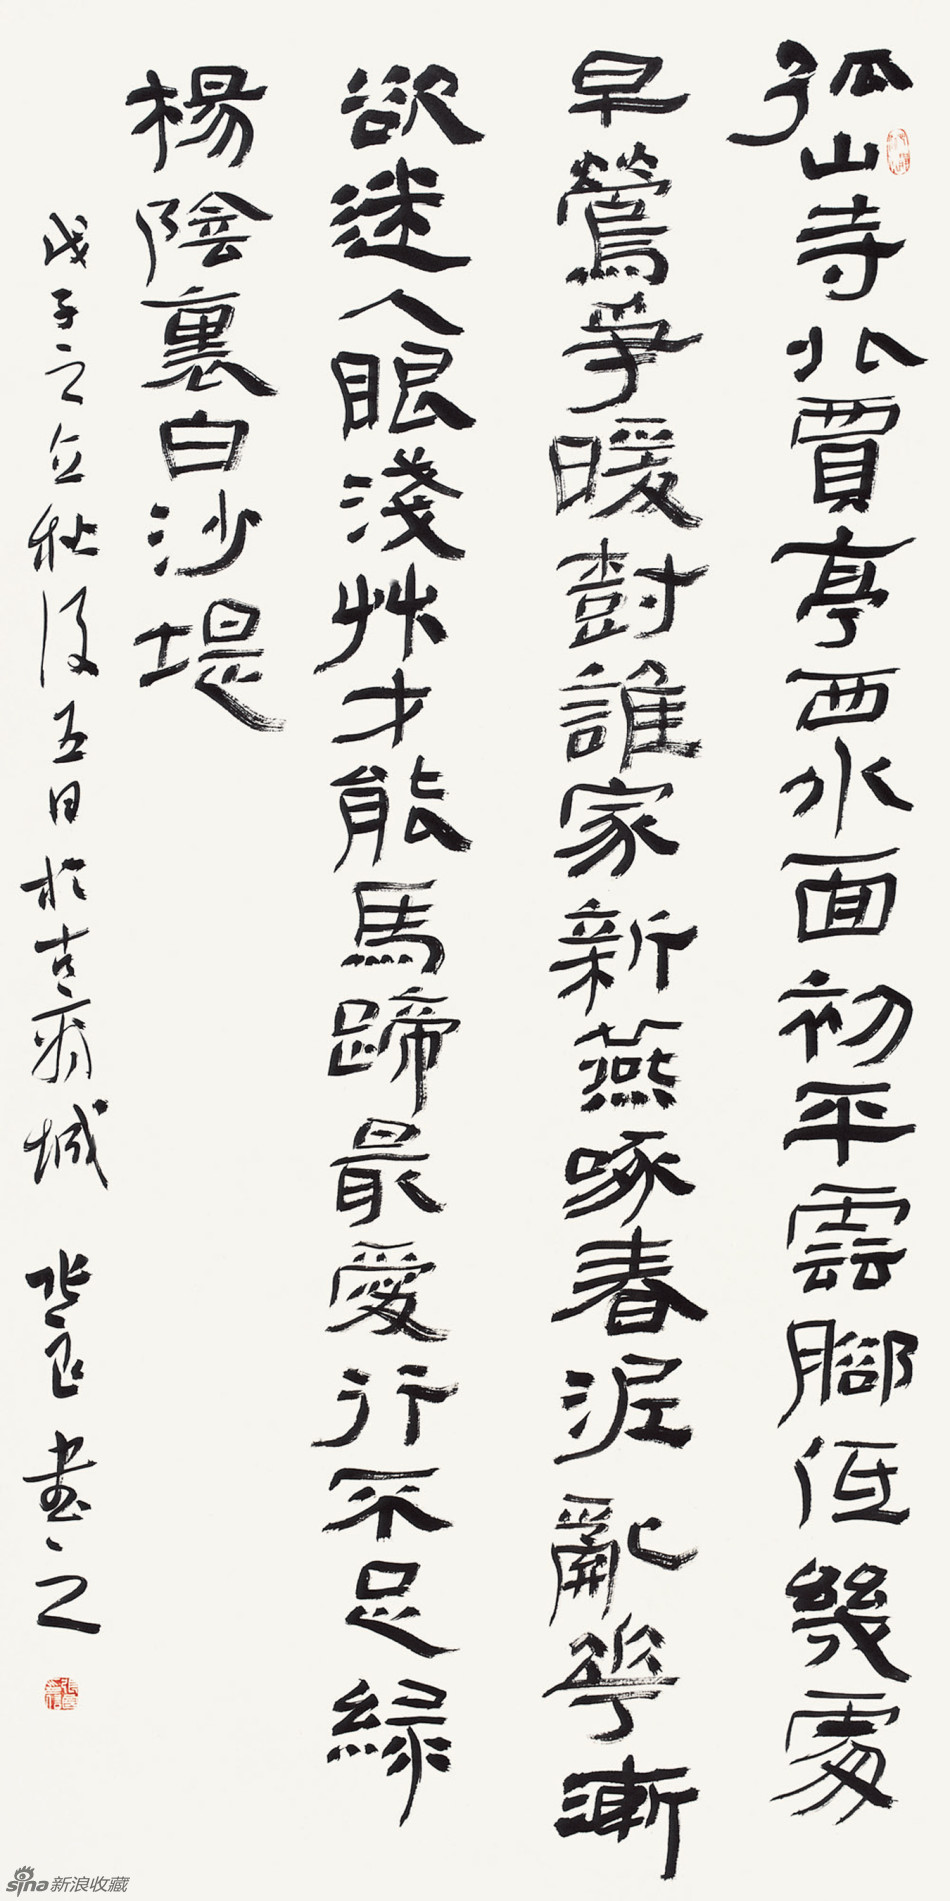 孤山寺北賈亭西水面初平雲腳低幾處
早鶯爭暖樹誰家新燕啄春泥亂花漸
欲迷人眼淺艸才能馬蹄最愛行不足綠
楊陰裏白沙堤
戊子之立秋後五日於古城書之
sina新浪收藏